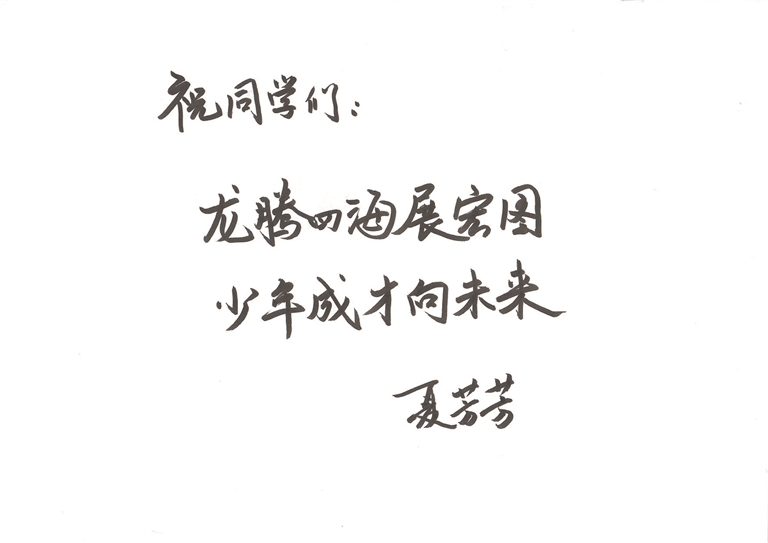 祝同学们：
龙腾四海展宏图
少年成才向未来
夏芳芳